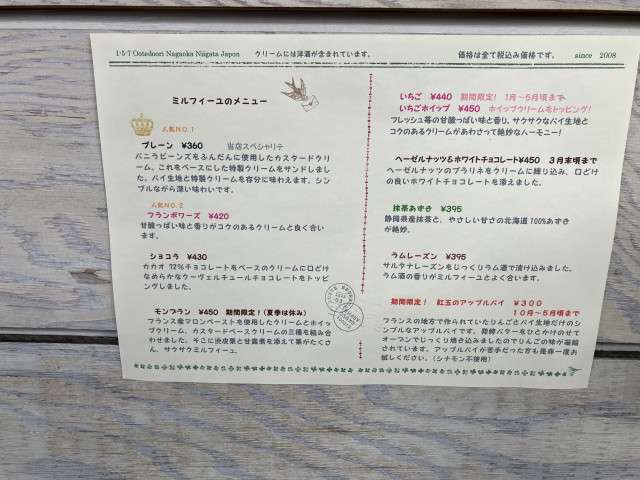 1-5-7 Ootedoori Nagaoka Niigata Japon
クリームには洋酒が含まれています。
価格は全て税込み価格です。
since 2008
ミルフィーユのメニュー
人気NO.1
プレーン ¥360 当店スペシャリテ
バニラビーンズをふんだんに使用したカスタードクリ
ーム。これをベースにした特製クリームをサンドしまし
た。パイ生地と特製クリームを存分に味わえます。シン
プルながら深い味わいです。
人気NO.2
フランボワーズ ¥420
甘酸っぱい味と香りがコクのあるクリームと良く合い
ます。
ショコラ ¥430
カカオ 72%チョコレートをベースのクリームに口どけ
なめらかなクーヴェルチュールチョコレートをトッピ
ングしました。
モンブラン ¥450 期間限定!(夏季は休み)
フランス産マロンペーストを使用したクリームとホイッ
プクリーム、カスタードベースクリームの三種を組み合
わせました。そこに渋皮栗と甘露煮を添えて栗がたくさ
ん、サクサクミルフィーユ。
いちご ¥440 期間限定! 1月〜5月頃まで
いちごホイップ ¥450 ホイップクリームをトッピング!
フレッシュ苺の甘酸っぱい味と香り、サクサクなパイ生地と
コクのあるクリームがあわさって絶妙なハーモニー!
ヘーゼルナッツ&ホワイトチョコレート¥450 3月末頃まで
ヘーゼルナッツのプラリネをクリームに練り込み、口どけ
の良いホワイトチョコレートを添えました。
抹茶あずき ¥395
静岡県産抹茶と、やさしい甘さの北海道100%あずき
が絶妙。
ラムレーズン ¥395
サルタナレーズンをじっくりラム酒で漬け込みました。
ラム酒の香りがミルフィーユとよく合います。
期間限定! 紅玉のアップルパイ ¥300
10月〜5月頃まで
フランスの地方で作られていたりんごとパイ生地だけのシ
ンプルなアップルパイです。発酵バターをひとかけのせて
オーブンでじっくり焼き込みましたのでりんごの味が凝縮
されています。アップルパイが苦手だった方も是非一度お
試しください。(シナモン不使用)